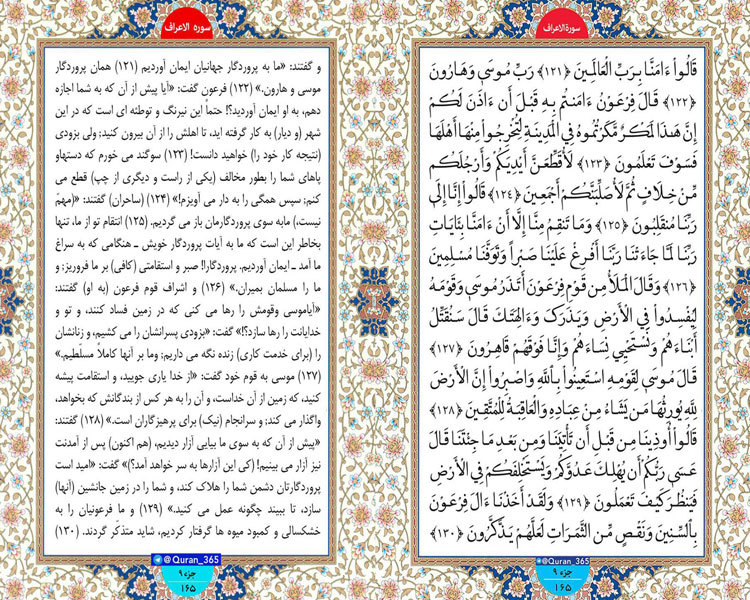 سورة الاعراف
قَالُواْ ءَامَنَّا بِرَبِّ الْعَالَمِينَ ﴿١٢١﴾ رَبِّ مُوسَى وَهَارُونَ
﴿١٢٢﴾ قَالَ فِرْعَوْنُ ءَامَنتُم بِهِ قَبْلَ أَن ءَاذَنَ لَكُمْ
إِنَّ هَذَا لَمَكْرٌ مَّكَرْتُمُوهُ فِي الْمَدِينَةِ لِتُخْرِجُواْ مِنْهَا أَهْلَهَا
فَسَوْفَ تَعْلَمُونَ ﴿١٢٣﴾ لَأُقَطِّعَنَّ أَيْدِيَكُمْ وَأَرْجُلَكُم
مِّنْ خِلَافٍ ثُمَّ لَأُصَلِّبَنَّكُمْ أَجْمَعِينَ ﴿١٢٤﴾ قَالُواْ إِنَّا إِلَى
رَبِّنَا مُنقَلِبُونَ ﴿١٢٥﴾ وَمَا تَنقِمُ مِنَّا إِلَّا أَنْ ءَامَنَّا بِئَايَاتِ
رَبِّنَا لَمَّا جَاءَتْنَا رَبَّنَا أَفْرِغْ عَلَيْنَا صَبْراً وَتَوَفَّنَا مُسْلِمِينَ
﴿١٢٦﴾ وَقَالَ الْمَلَأُ مِن قَوْمِ فِرْعَوْنَ أَتَذَرُ مُوسَى وَقَوْمَهُ
لِيُفْسِدُواْ فِي الْأَرْضِ وَيَذَرَكَ وَءَالِهَتَكَ قَالَ سَنُقَتِّلُ
أَبْنَاءَهُمْ وَنَسْتَحْيِي نِسَاءَهُمْ وَإِنَّا فَوْقَهُمْ قَاهِرُونَ ﴿١٢٧﴾
قَالَ مُوسَى لِقَوْمِهِ اسْتَعِينُواْ بِاللَّهِ وَاصْبِرُواْ إِنَّ الْأَرْضَ
لِلَّهِ يُورِثُهَا مَن يَشَاءُ مِنْ عِبَادِهِ وَالْعَاقِبَةُ لِلْمُتَّقِينَ ﴿١٢٨﴾
قَالُواْ أُوذِينَا مِن قَبْلِ أَن تَأْتِيَنَا وَمِن بَعْدِ مَا جِئْتَنَا قَالَ
عَسَى رَبُّكُمْ أَن يُهْلِكَ عَدُوَّكُمْ وَيَسْتَخْلِفَكُمْ فِي الْأَرْضِ
فَيَنظُرَ كَيْفَ تَعْمَلُونَ ﴿١٢٩﴾ وَلَقَدْ أَخَذْنَا ءَالَ فِرْعَوْنَ
بِالسِّنِينَ وَنَقْصٍ مِّنَ الثَّمَرَاتِ لَعَلَّهُمْ يَذَّكَّرُونَ ﴿١٣٠﴾
@Quran_365
جزء ۹
۱۶۵
سوره الاعراف
و گفتند: «ما به پروردگار جهانیان ایمان آوردیم (۱۲۱) همان پروردگار
موسی و هارون.» (۱۲۲) فرعون گفت: «آیا پیش از آن که به شما اجازه
دهم، به او ایمان آوردید؟! حتماً این نیرنگ و توطئه ای است که در این
شهر (و دیار) به کار گرفته اید، تا اهلش را از آن بیرون کنید; ولی بزودی
(نتیجه کار خود را) خواهید دانست! (۱۲۳) سوگند می خورم که دستهاو
پاهای شما را بطور مخالف (یکی از راست و دیگری از چپ) قطع می
کنم; سپس همگی را به دار می آویزم!» (۱۲۴) (ساحران) گفتند: «مهمّ
نیست،) مابه سوی پروردگارمان باز می گردیم. (۱۲۵) انتقام تو از ما، تنها
بخاطر این است که ما به آیات پروردگار خویش ـ هنگامی که به سراغ
ما آمد ـ ایمان آوردیم. پروردگارا! صبر و استقامتی (کافی) بر ما فروریز; و
ما را مسلمان بمیران.» (۱۲۶) و اشراف قوم فرعون (به او) گفتند:
«آیاموسی وقومش را رها می کنی که در زمین فساد کنند، و تو و
خدایانت را رها سازد؟!» گفت: «بزودی پسرانشان را می کشیم، و زنانشان
را (برای خدمت کاری) زنده نگه می داریم; وما بر آنها کاملاً مسلّطیم.»
(۱۲۷) موسی به قوم خود گفت: «از خدا یاری جویید، و استقامت پیشه
کنید، که زمین از آن خداست، و آن را به هر کس از بندگانش که بخواهد،
واگذار می کند; و سرانجام (نیک) برای پرهیزگاران است.» (۱۲۸) گفتند:
«پیش از آن که به سوی ما بیایی آزار دیدیم، (هم اکنون) پس از آمدنت
نیز آزار می بینیم! (کی این آزارها به سر خواهد آمد؟)» گفت: «امید است
پروردگارتان دشمن شما را هلاک کند، و شما را در زمین جانشین (آنها)
سازد، تا ببیند چگونه عمل می کنید.» (۱۲۹) و ما فرعونیان را به
خشکسالی و کمبود میوه ها گرفتار کردیم، شاید متذکّر گردند. (۱۳۰)
@Quran_365
جزء ۹
۱۶۵